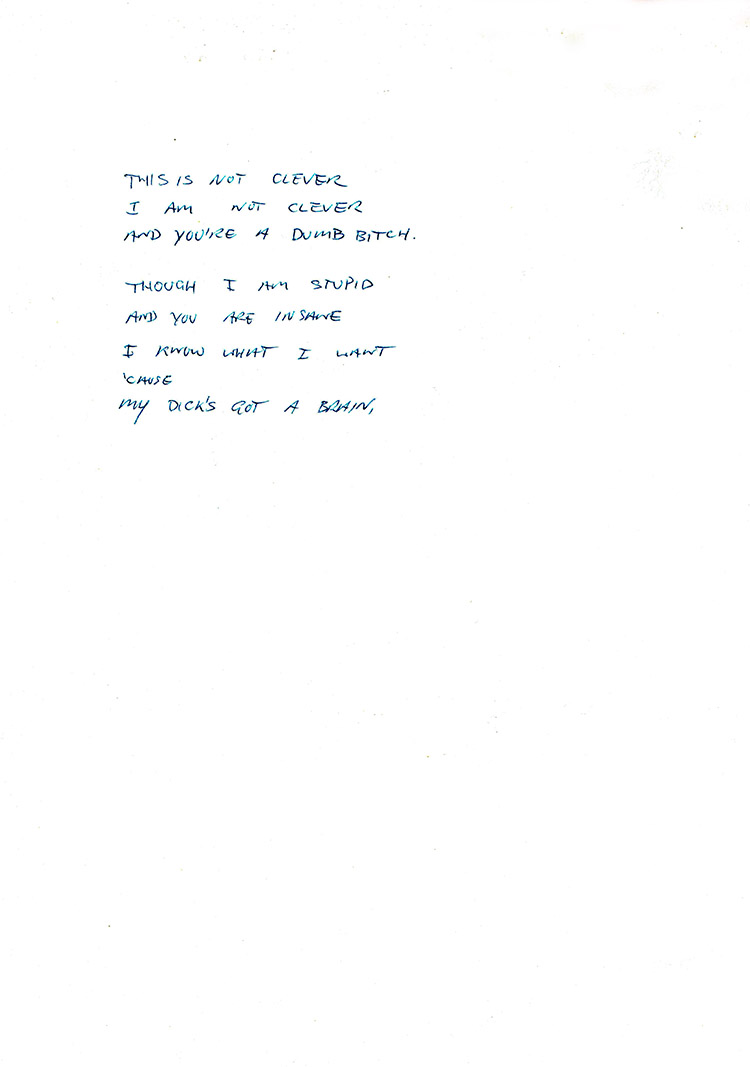 THIS IS NOT CLEVER
I AM NOT CLEVER
AND YOU'RE A DUMB BITCH.
THOUGH I AM STUPID
AND YOU ARE INSANE
I KNOW WHAT I WANT
'CAUSE
MY DICK'S GOT A BRAIN,